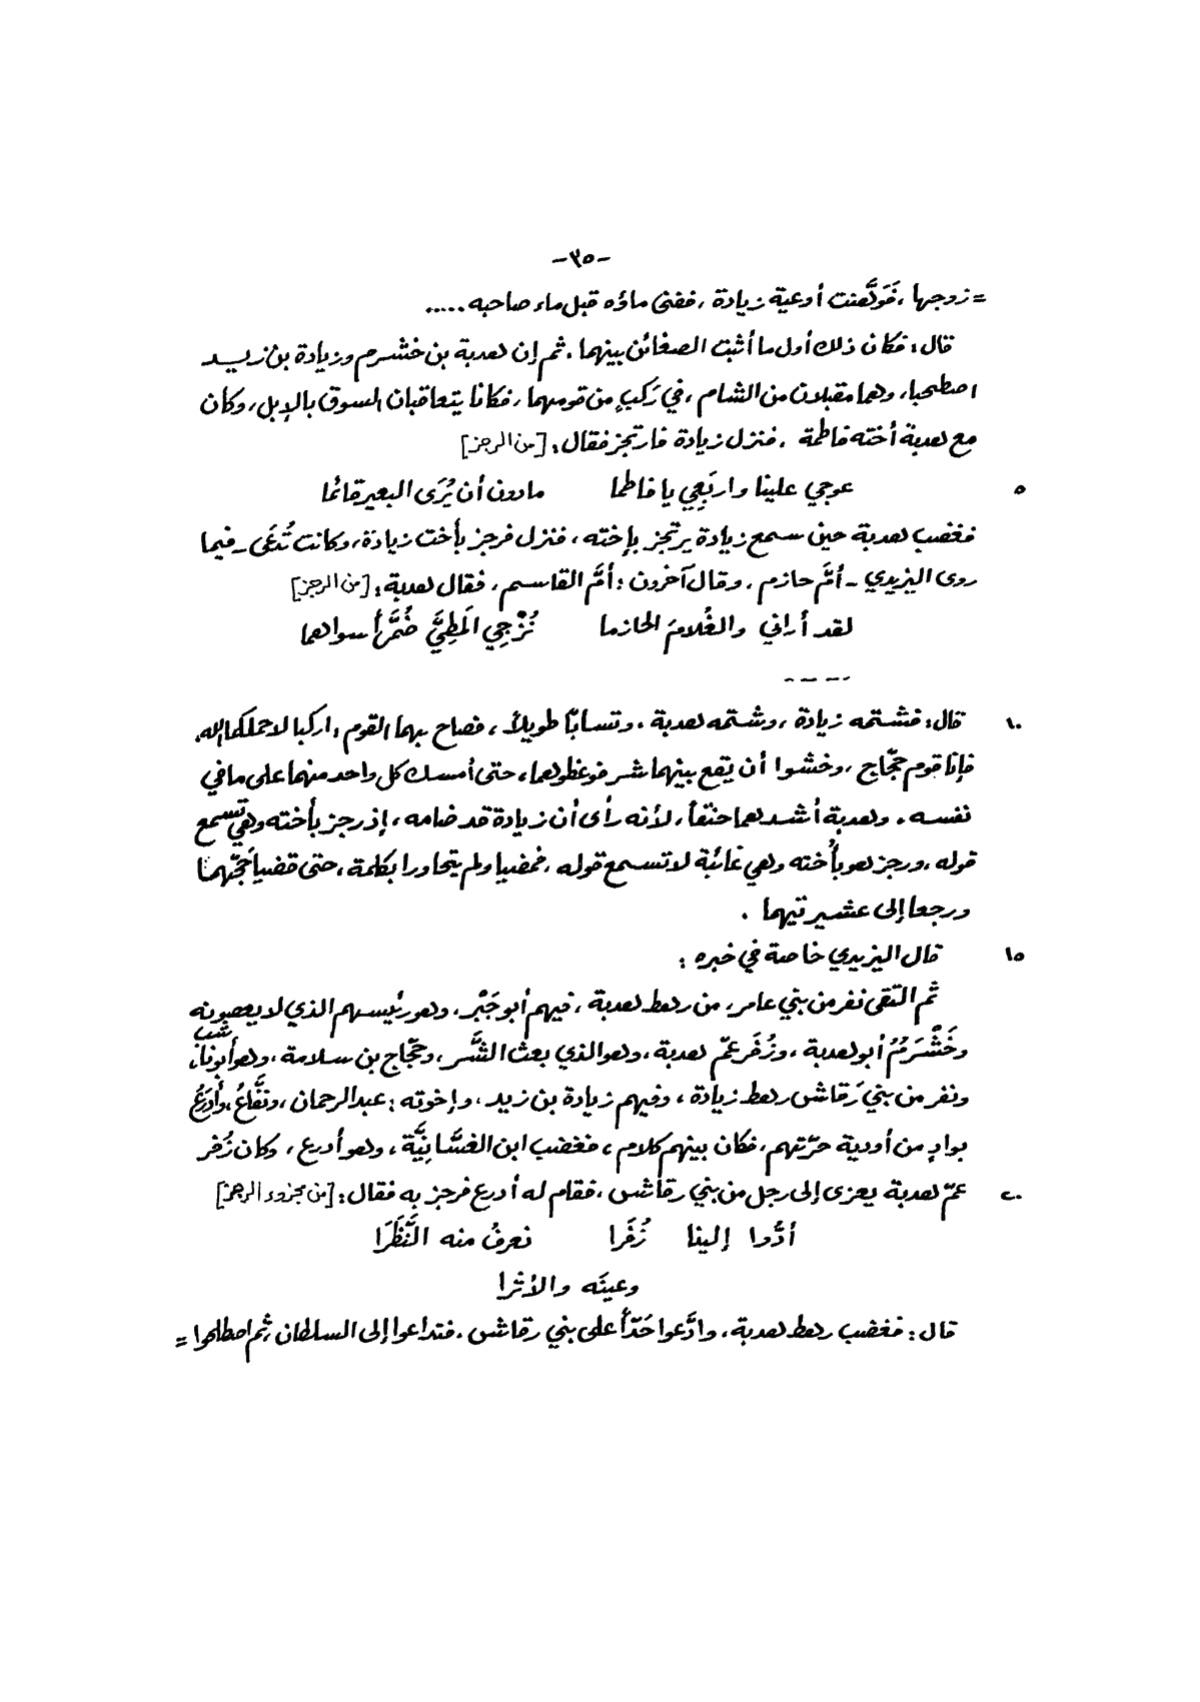 -٣٥-
= زوجها، فَوَلَّعنت أوعية زيادة، ففنى ماؤه قبل ماء صاحبه.....
قال: فكان ذلك أول ما أثبت الضغائن بينهما. ثم إن هدبة بن خشرم وزيادة بن زيد
اصطحبا، وهما مقبلان من الشام، في رَكبٍ من قومهما، فكانا يتعاقبان السوق بالإبل، وكان
مع هدبة أخته فاطمة، فنزل زيادة فارتجز فقال: [من الرجز]
٥ عوجي علينا واربَعِي يا فاطما مادون أن يُرَى البعير قائما
فغضب هدبة حين سمع زيادة يرتجز بإخته، فنزل فرجز بأخت زيادة، وكانت تُدعَى - فيما
روى اليزيدي - أمَّ حازم، وقال آخرون: أمَّ القاسم، فقال هدبة: [من الرجز]
لقد أراني والغُلامَ الحازما نُزْجِي المَطِيَّ ضُمَّراً سواهما
- - - -
١٠ قال: فشتمه زيادة، وشتمه هدبة، وتسابّا طويلاً، فصاح بهما القوم: اركبا لاحملكما الله،
فإنا قوم حجّاج، وخشوا أن يقع بينهما شر فوعظوهما، حتى أمسك كل واحد منهما على ما في
نفسه، وهدبة أشدهما حنقاً، لأنه رأى أن زيادة قد ضامه، إذ رجز بأخته وهي تسمع
قوله، ورجز هو بأُخته وهي غائبة لا تسمع قوله، فمضيا ولم يتحاورا بكلمة، حتى قضيا حجّهما
ورجعا إلى عشيرتيهما.
١٥ قال اليزيدي خاصة في خبره:
ثم التقى نفر من بني عامر، من رهط هدبة، فيهم أبو جَبْر، وهو رئيسهم الذي لا يعصونه
وخَشْرَمُ أبو هدبة، وزُفَر عمّ هدبة، وهو الذي بعث الشَّر، وحجّاج بن سلامة، وهو أبو ناشب
ونفر من بني رَقاش رهط زيادة، وفيهم زيادة بن زيد، وإخوته: عبدالرحمان، ونفَّاعُ، وأدرَعُ
بوادٍ من أودية حرّتهم، فكان بينهم كلام، فغضب ابن الغسَّانِيَّة، وهو أدرع، وكان زُفر
٢٠ عمّ هدبة يعزى إلى رجل من بني رقاش، فقام له أدرع فرجز به فقال: [من مجزوء الرجز]
أدُّوا إلينا زُفَرا نعرفُ منه النَّظَرَا
وعينَه والأثرا
قال: فغضب رهط هدبة، وادَّعوا حَدّاً على بني رقاش، فتداعوا إلى السلطان، ثم اصطلحوا =